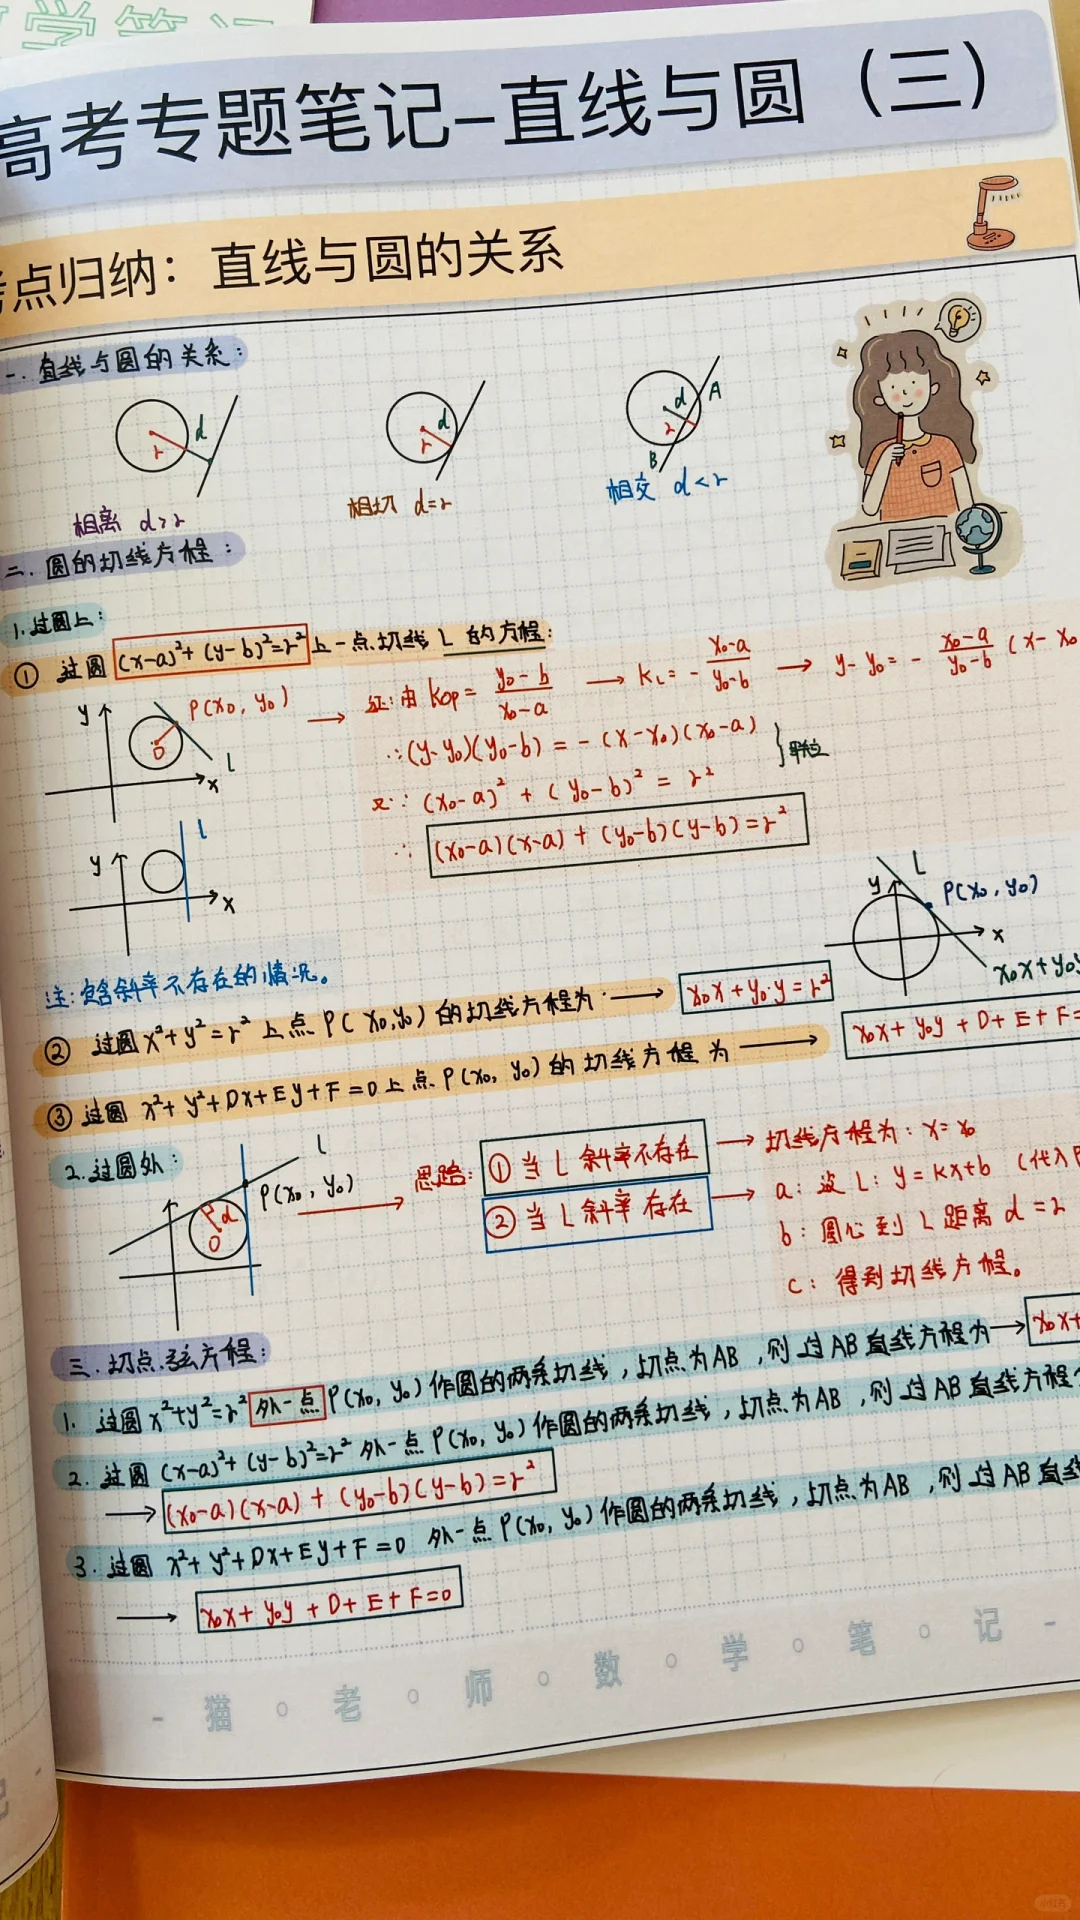 高考专题笔记-直线与圆（三）
考点归纳：直线与圆的关系
一.直线与圆的关系：
r d
r d
d A
r
B
相离 d>r
相切 d=r
相交 d<r
二.圆的切线方程：
1.过圆上：
① 过圆 (x-a)²+(y-b)²=r² 上一点切线 L 的方程：
y P(x₀,y₀) O L x
证:由 kop= (y₀-b)/(x₀-a) → kL= -(x₀-a)/(y₀-b) → y-y₀= -(x₀-a)/(y₀-b) (x-x₀
∴(y-y₀)(y₀-b)=-(x-x₀)(x₀-a)
又∵(x₀-a)²+(y₀-b)²=r²
∴ (x₀-a)(x-a)+(y₀-b)(y-b)=r²
y l x
注:包含斜率不存在的情况。
y L P(x₀,y₀) x
x₀x+y₀y
② 过圆 x²+y²=r² 上点 P(x₀,y₀) 的切线方程为: → x₀x+y₀·y=r²
③ 过圆 x²+y²+Dx+Ey+F=0 上点 P(x₀,y₀) 的切线方程为 → x₀x+y₀y+D+E+F=
2.过圆外：
L P(x₀,y₀) r d O
思路: ① 当 L 斜率不存在 → 切线方程为: x=x₀
② 当 L 斜率存在 → a: 设 L: y=kx+b (代入P
b: 圆心到 L 距离 d=r
c: 得到切线方程。
三.切点弦方程：
1. 过圆 x²+y²=r² 外一点 P(x₀,y₀) 作圆的两条切线，切点为AB，则过AB直线方程为 → x₀x+
2. 过圆 (x-a)²+(y-b)²=r² 外一点 P(x₀,y₀) 作圆的两条切线，切点为AB，则过AB直线方程
→ (x₀-a)(x-a)+(y₀-b)(y-b)=r²
3. 过圆 x²+y²+Dx+Ey+F=0 外一点 P(x₀,y₀) 作圆的两条切线，切点为AB，则过AB直线
→ x₀x+y₀y+D+E+F=0
- 猫 ○ 老 ○ 师 ○ 数 ○ 学 ○ 笔 ○ 记 -
小红书